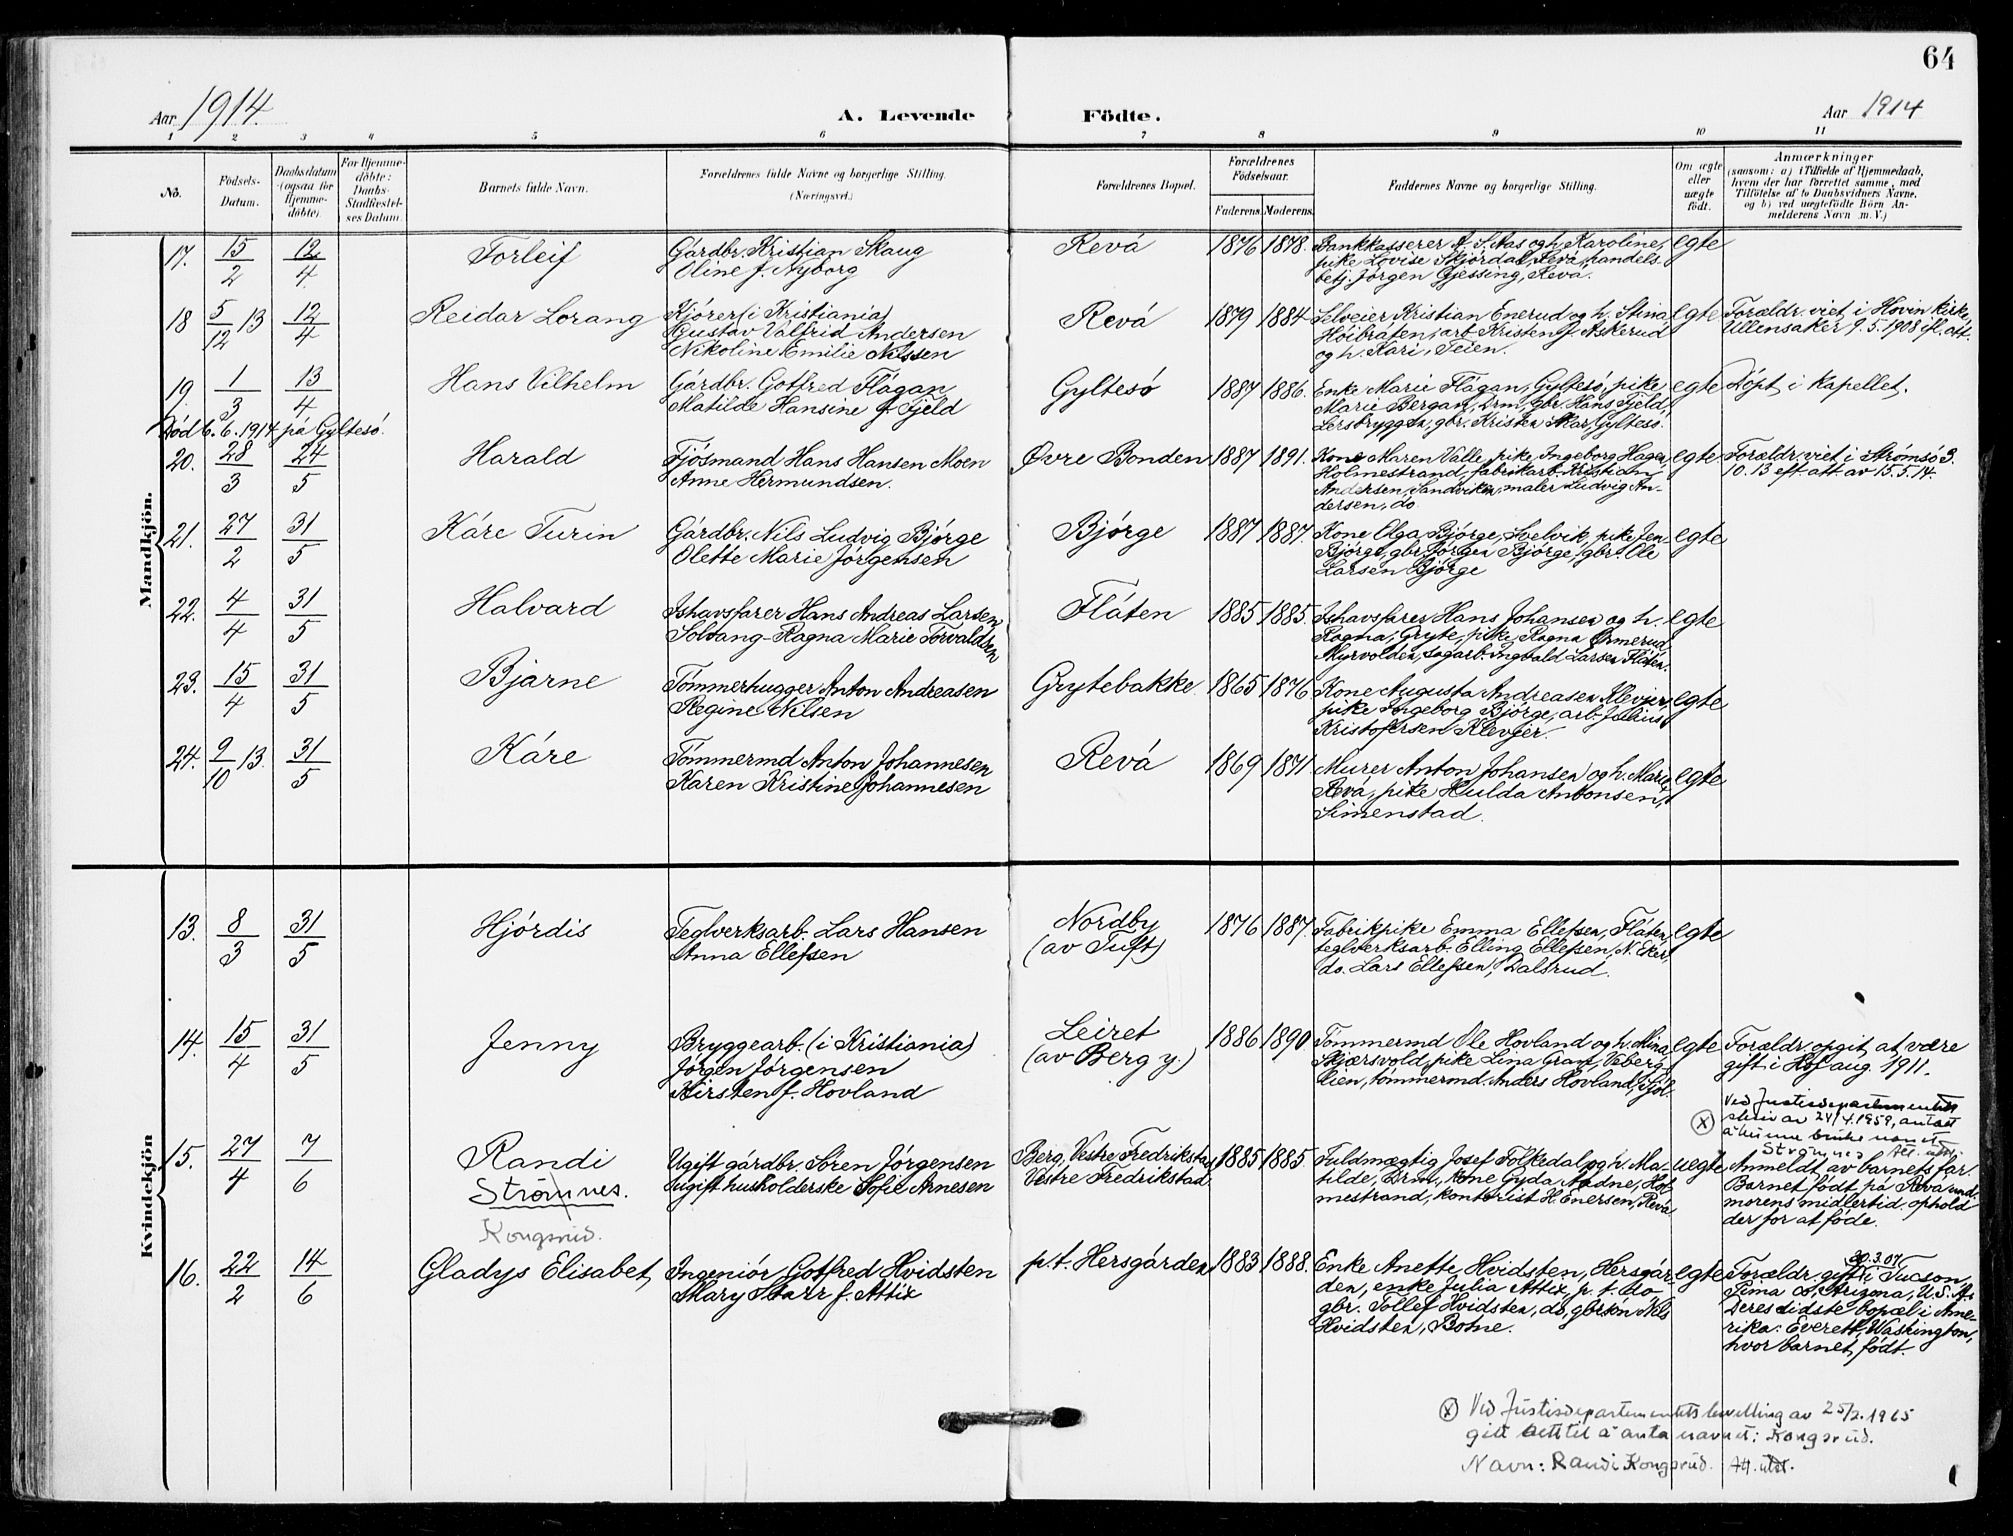 64
Aar 1914.
A. Levende
Födte.
Aar 1914
1 2 3 4 5 6 7 8 9 10 11
No.
Födsels-
Datum.
Daabsdatum
(ogsaa for
Hjemme-
döbte).
For Hjemme-
döbte:
Daabs-
Stadfæstel-
ses Datum.
Barnets fulde Navn.
Forældrenes fulde Navne og borgerlige Stilling.
(Næringsvei.)
Forældrenes Bopæl.
Forældrenes
Födselsaar.
Faderens. Moderens.
Faddernes Navne og borgerlige Stilling.
Om ægte
eller
uægte
födt.
Anmærkninger
(saasom: a) i Tilfælde af Hjemmedaab,
hvem der har forrettet samme, med
Tilföielse af to Daabsvidners Navne.
og b) ved uægtefödte Börn An-
melderens Navn m. V.)
Mandkjön.
17. 15/2 12/4 Torleif
Gårdbr. Kristian Skaug
Oline f. Nyborg
Revå 1876 1878.
Bankkasserer A. S. Aas og h. Karoline,
pike Lovise Skjördal, Revå, handels-
betj. Jörgen Gjessing, Revå.
egte
18 5/12 13 12/4 Reidar Lorang
Kjörer (i Kristiania)
Gustav Valfrid Andersen
Nikoline Emilie Nilssen
Revå 1879 1884
Selveier Kristian Enerud og h. Stina
Höibråten, arb. Kristen f. Askerud
og h. Kari, Teien.
egte
Forældr. viet i Hovin kirke,
Ullensaker 9.5.1908 ifl. att.
19 1/3 13/4 Hans Vilhelm
Gårdbr. Gotfred Flågan
Matilde Hansine f. Fjeld
Gyltesö 1887 1886.
Enke Marie Flågan, Gyltesö, pike
Marie Bergan, Drm, gbr. Hans Fjeld,
Lersbryggen, gbr. Kristen Skar, Gyltesö.
egte
Döpt i Kapellet.
Död 6. 6. 1914 på Gyltesö.
20. 28/3 24/5 Harald
Fjösmand Hans Hansen Moen
Anne Hermundsen.
Øvre Bonden 1887 1891.
Kone Maren Valle, pike Ingeborg Hagen,
Holmestrand, fabrikarb. Kristian
Andersen, Sandviken, maler Ludvig An-
dersen, do.
egte
Forældr. viet i Strömsö 3.
10. 13 eft. att av 15.5.14.
21. 27/2 31/5 Kåre Turin
Gårdbr. Nils Ludvig Bjørge
Olette Marie Jörgensen
Bjørge 1887 1887.
Kone Olga Bjørge, Svelvik, pike Jen-
Bjørge, gbr. Jörgen Bjørge, gbr. Ole
Larsen Bjørge
egte
22. 4/4 31/5 Halvard
Ishavsfarer Hans Andreas Larsen
Solvang - Ragna Marie Torvaldsen
Flåten 1885 1885.
Ishavsfarer Hans Johansen og h.
Ragna, Gryte, pike Ragna Ørmerud,
Myrvolden, sagarb. Ingvald Larsen Flåten.
egte
23. 15/4 31/5 Bjarne
Tömmerhugger Anton Andreasen
Regine Nilsen
Grytebakke. 1865 1876
Kone Augusta Andreasen Klevjer,
pike Ingeborg Bjørge, arb. Julius
Kristofersen Klevjer.
egte
24. 9/10 13. 31/5 Kåre
Tömmermd Anton Johannesen
Karen Kristine Johannesen
Revå 1869 1871
Murer Anton Johansen og h. Marie,
Revå, pike Hulda Antonsen,
Simenstad.
egte
Kvindekjön
13. 8/3 31/5 Hjördis
Teglverksarb. Lars Hansen
Anna Ellefsen
Nordby
(av Tuft)
1876 1887.
Fabrikpike Emma Ellefsen, Flåten,
teglverksarb. Elling Ellefsen, N. Eker,
do. Lars Ellefsen, Dalsrud.
egte
14. 15/4 31/5 Jenny
Bryggearb. (i Kristiania)
Jörgen Jörgensen
Kirsten f. Hovland
Leiret
(av Berg y.)
1886 1890
Tömmermd Ole Hovland og h. Mina
Skjærsvold, pike Lina Gran, Veberg-
lien, tömmermd. Anders Hovland,
egte
Forældr. opgit at være
gift i Hof aug. 1911.
(x) Ved Justisdepartementets
skriv av 24/4.1959, antatt
å kunne bruke navnet
Strømnes
15. 27/4 7/6 Randi
Strømnes.
Kongsrud.
Ugift gårdbr. Sören Jörgensen
Ugift husholderske Sofie Arnesen
Berg, Vestre Fredrikstad
Vestre Fredrikstad
1885 1885.
Fuldmægtig Josef Folkedal og h. Ma-
tilde, Drm, Kone Gyda Aadne, Hol-
mestrand, kontorist H. Enersen, Revå.
uegte
Anmeldt av barnets far
Barnet födt på Revå und.
morens midlertid. ophold
der for at föde.
16. 22/2 14/6 Gladys Elisabet,
Ingeniör Gotfred Hvidsten
Mary Starr f. Attix
p.t. Hersgården 1883 1888.
Enke Anette Hvidsten, Hersgår-
den, enke Julia Attix, p. t. do
gbr. Tollef Hvidsten, do, gbrsön Nils
Hvidsten, Botne.
egte
30.3.07
Forældr. gift i Tucson,
Pima Co, Arizona, U.S.A.
Deres sidste bopæl i Ame-
rika: Everett, Washington,
hvor barnet födt.
(x) Ved Justisdepartementets bevilling av 25/2.1965
gitt rett til å anta navnet: Kongsrud.
Navn: Randi Kongsrud. Att. utst.